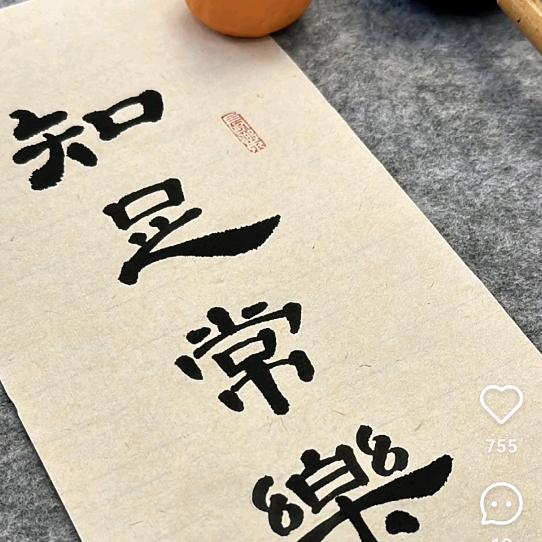 知足常樂
755